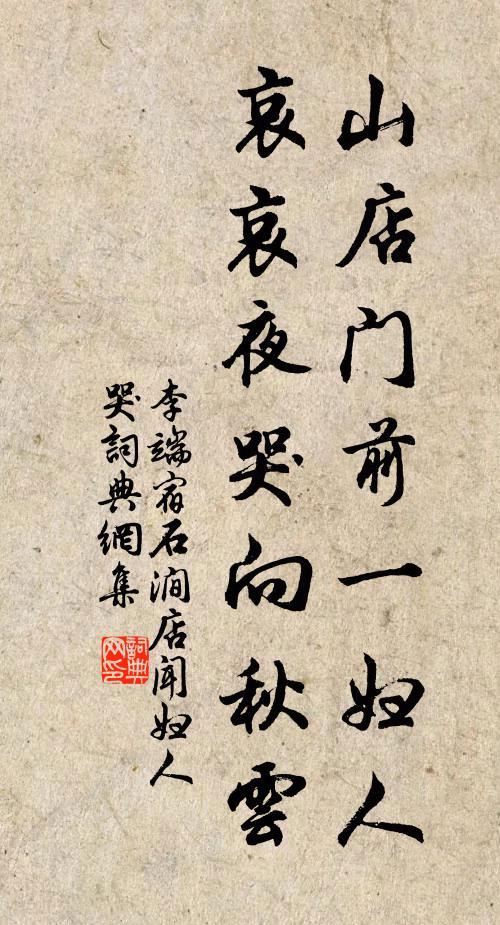 山店门前一妇人
哀哀夜哭向秋雲
李端宿石涧店闻妇人
哭詞典網集
詞典網印